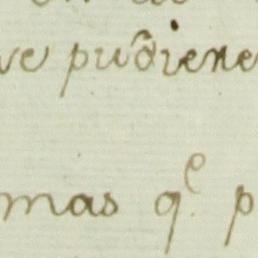 ve pudiene
mas q.e p